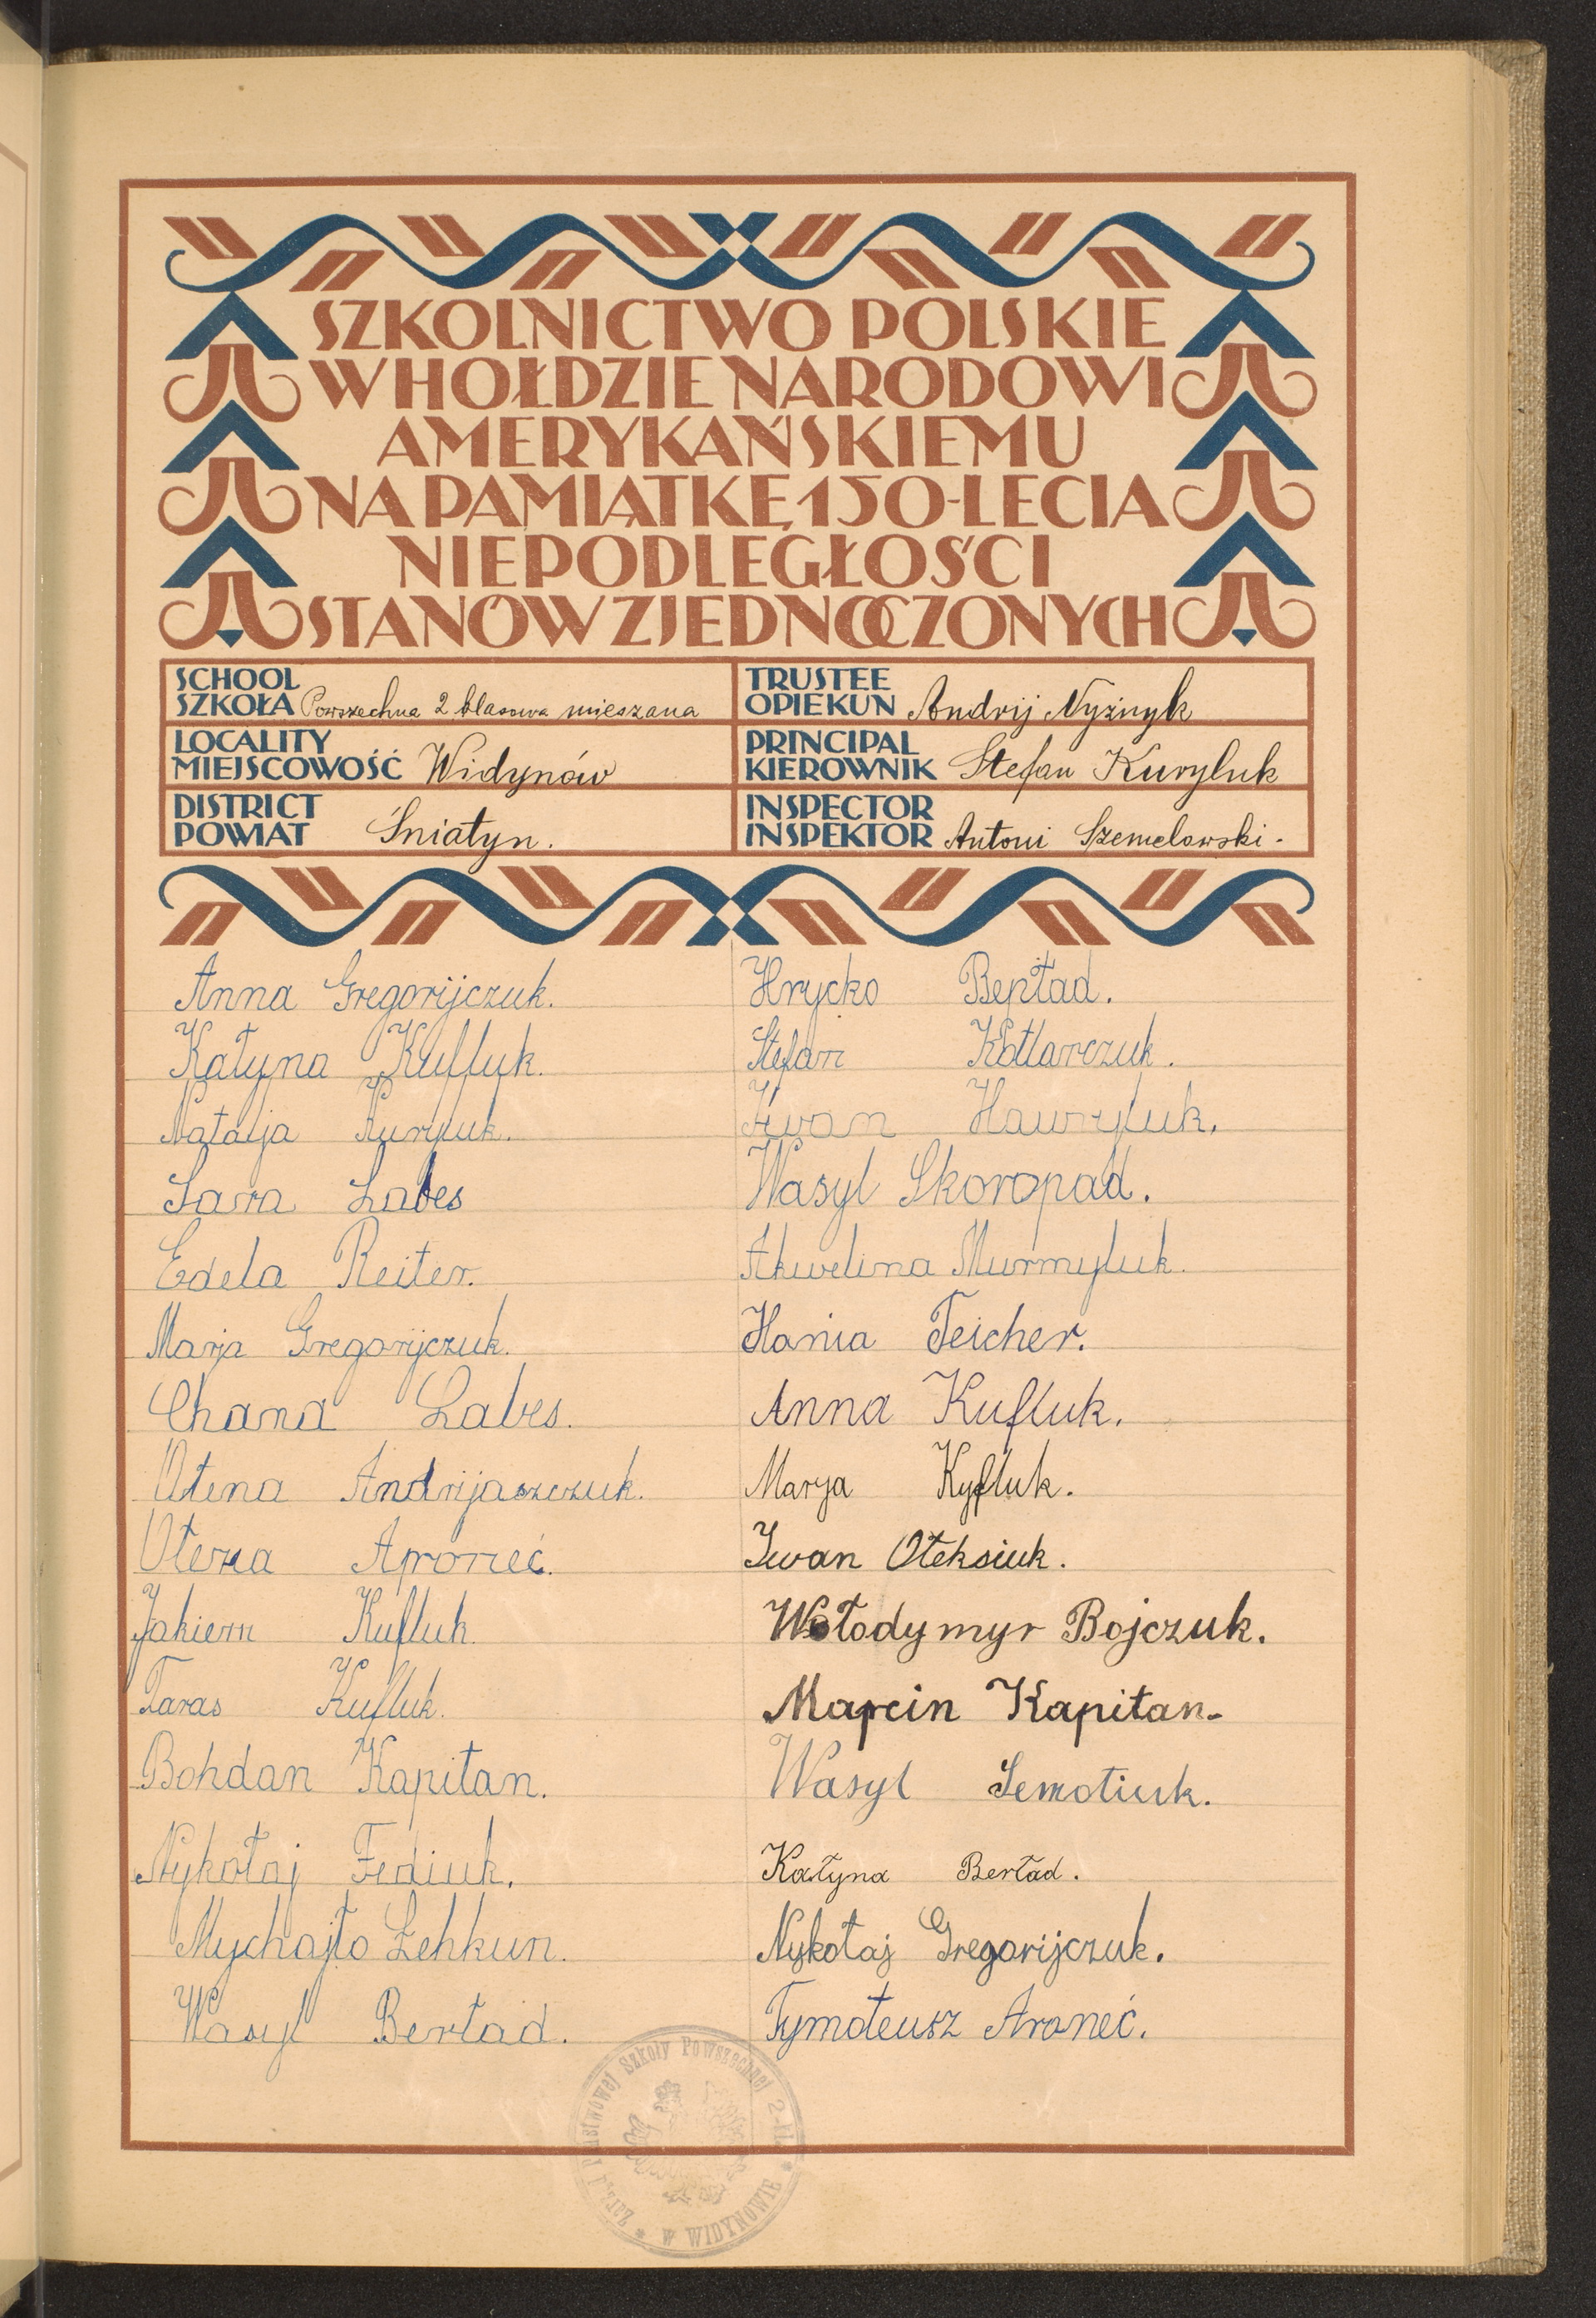 SZKOLNICTWO POLSKIE
W HOŁDZIE NARODOWI
AMERYKAŃSKIEMU
NA PAMIĄTKĘ 150-LECIA
NIEPODLEGŁOŚCI
STANÓW ZJEDNOCZONYCH
SCHOOL
SZKOŁA Powszechna 2 klasowa mieszana
TRUSTEE
OPIEKUN Andrij Nyżnyk
LOCALITY
MIEJSCOWOŚĆ Widynów
PRINCIPAL
KIEROWNIK Stefan Kuryluk
DISTRICT
POWIAT Śniatyn.
INSPECTOR
INSPEKTOR Antoni Szemelowski.
Anna Gregorijczuk.
Katyna Kufluk.
Natalja Kuryluk.
Sara Labes
Edela Reiter.
Marja Gregorijczuk.
Chana Labes.
Ołena Andrijaszczuk.
Ołena Aroneć.
Jakiem Kufluk.
Taras Kufluk.
Bohdan Kapitan.
Nykołaj Fediuk.
Mychajło Lehkun.
Wasyl Berład.
Hrycko Berład.
Stefan Kotlarczuk.
Iwan Hawryluk.
Wasyl Skoropad.
Akwelina Murmyluk.
Hania Teicher.
Anna Kufluk.
Marya Kyfluk.
Iwan Ołeksiuk.
Wołodymyr Bojczuk.
Marcin Kapitan.
Wasyl Semotiuk.
Kałyna Berład.
Nykołaj Gregorijczuk.
Tymoteusz Aroneć.
Zarząd Państwowej Szkoły Powszechnej 2-kl.
* W WIDYNOWIE *